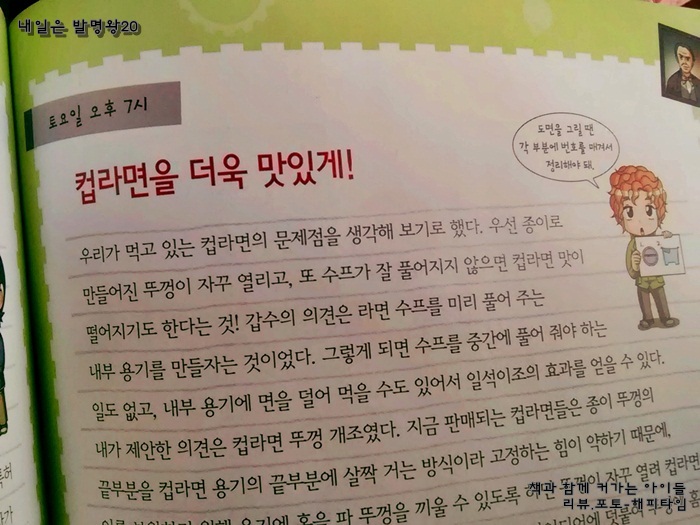 내일은 발명왕20
토요일 오후 7시
컵라면을 더욱 맛있게!
도면을 그릴 땐
각 부분에 번호를 매겨서
정리해야 돼.
우리가 먹고 있는 컵라면의 문제점을 생각해 보기로 했다. 우선 종이로
만들어진 뚜껑이 자꾸 열리고, 또 수프가 잘 풀어지지 않으면 컵라면 맛이
떨어지기도 한다는 것! 갑수의 의견은 라면 수프를 미리 풀어 주는
내부 용기를 만들자는 것이었다. 그렇게 되면 수프를 중간에 풀어 줘야 하는
일도 없고, 내부 용기에 면을 덜어 먹을 수도 있어서 일석이조의 효과를 얻을 수 있다.
내가 제안한 의견은 컵라면 뚜껑 개조였다. 지금 판매되는 컵라면들은 종이 뚜껑의
끝부분을 컵라면 용기의 끝부분에 살짝 거는 방식이라 고정하는 힘이 약하기 때문에,
뚜껑이 자꾸 열려 컵라면
용기에 홈을 파 뚜껑을 끼울 수 있도록
책과 함께 커가는 아이들
리뷰.포토_해피타임